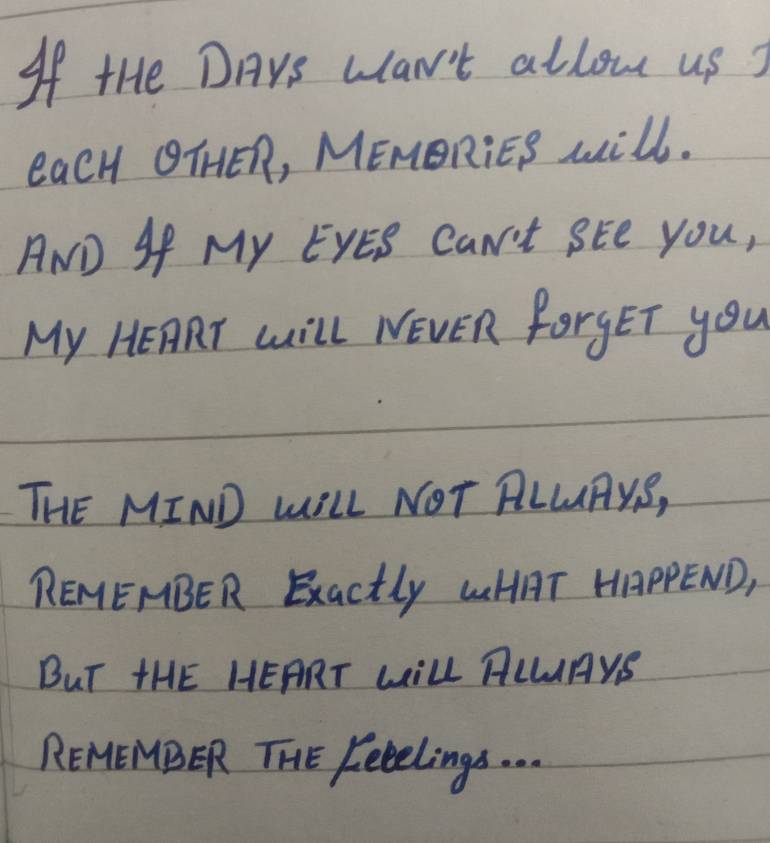 If tHe DAYS wan't allow us
eacH OTHER, MEMORiES will.
AND If MY EYES Can't SEe you,
MY HEART will NEVER forgET you
THE MIND will NOT ALWAYS,
REMEMBER Exactly wHAT HAPPEND,
BuT tHE HEART will ALWAYS
REMEMBER THE Feeelings...